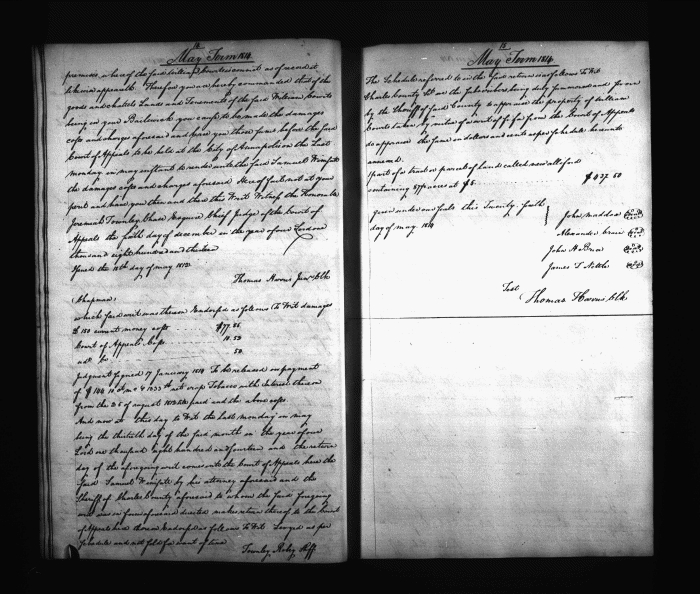 18
May Term 1814
premises, where of the said William Courts convict as of record it
to be in appeareth. Therefore you are hereby commanded that of the
goods and chattels Lands and Tenements of the said William Courts
being in your Bailiwick you cause to be made the damages
costs and charges aforesaid and have you those sums before the said
Court of Appeals to be held at the City of Annapolis on the Last
monday in may instant to render unto the said Samuel
the damages costs and charges aforesaid Hereof fail not at your
peril and have you then and there this Writ Witness the Honorable
Jeremiah Townley Chase Esquire Chief Judge of the Court of
Appeals the day of december in the year of our Lord one
thousand eight hundred and thirteen
Issued the day of may
Thomas Harris Junr Clk
(Chapman)
which said writ was thereon Endorsed as follows To Wit damages
$ 150 current money costs $77.55
Court of Appeals Costs 10.53
adl fee .50
Judgment signed 17 January 1814 To be released on payment
of Tobacco with Interest thereon
from the 26 of august till paid and the above costs
And now at this day to Wit the last monday in may
being the thirtieth day of the said month in the year of our
Lord one thousand eight hundred and fourteen and the return
day of the aforegoing writ comes into the Court of Appeals here the
said Samuel by his attorney aforesaid and the
Sheriff of Charles County aforesaid to whom the said foregoing
writ was in form aforesaid directed makes return thereof to the Court
of Appeals here thereon Endorsed as follows To Wit Levyed as per
schedule and not sold for want of time
Townley Roby Shff
18
May Term 1814
The Schedule referred to in the said return is as follows To Wit
Charles county We the Subscribers being duly summoned and sworn
by the Sheriff of said County to appraise the property of William
Courts taken by virtue of a writ of fi fa from the Court of Appeals
do appraise the same in dollars and cents as per Schedule hereunto
annexed.
1 part of a tract or parcel of land called new all fard
containing acres at $5 $437.50
given under our seals this Twenty sixth
day of may 1814
John maddox
Alexander
John H
James S
Test
Thomas Harris Clk